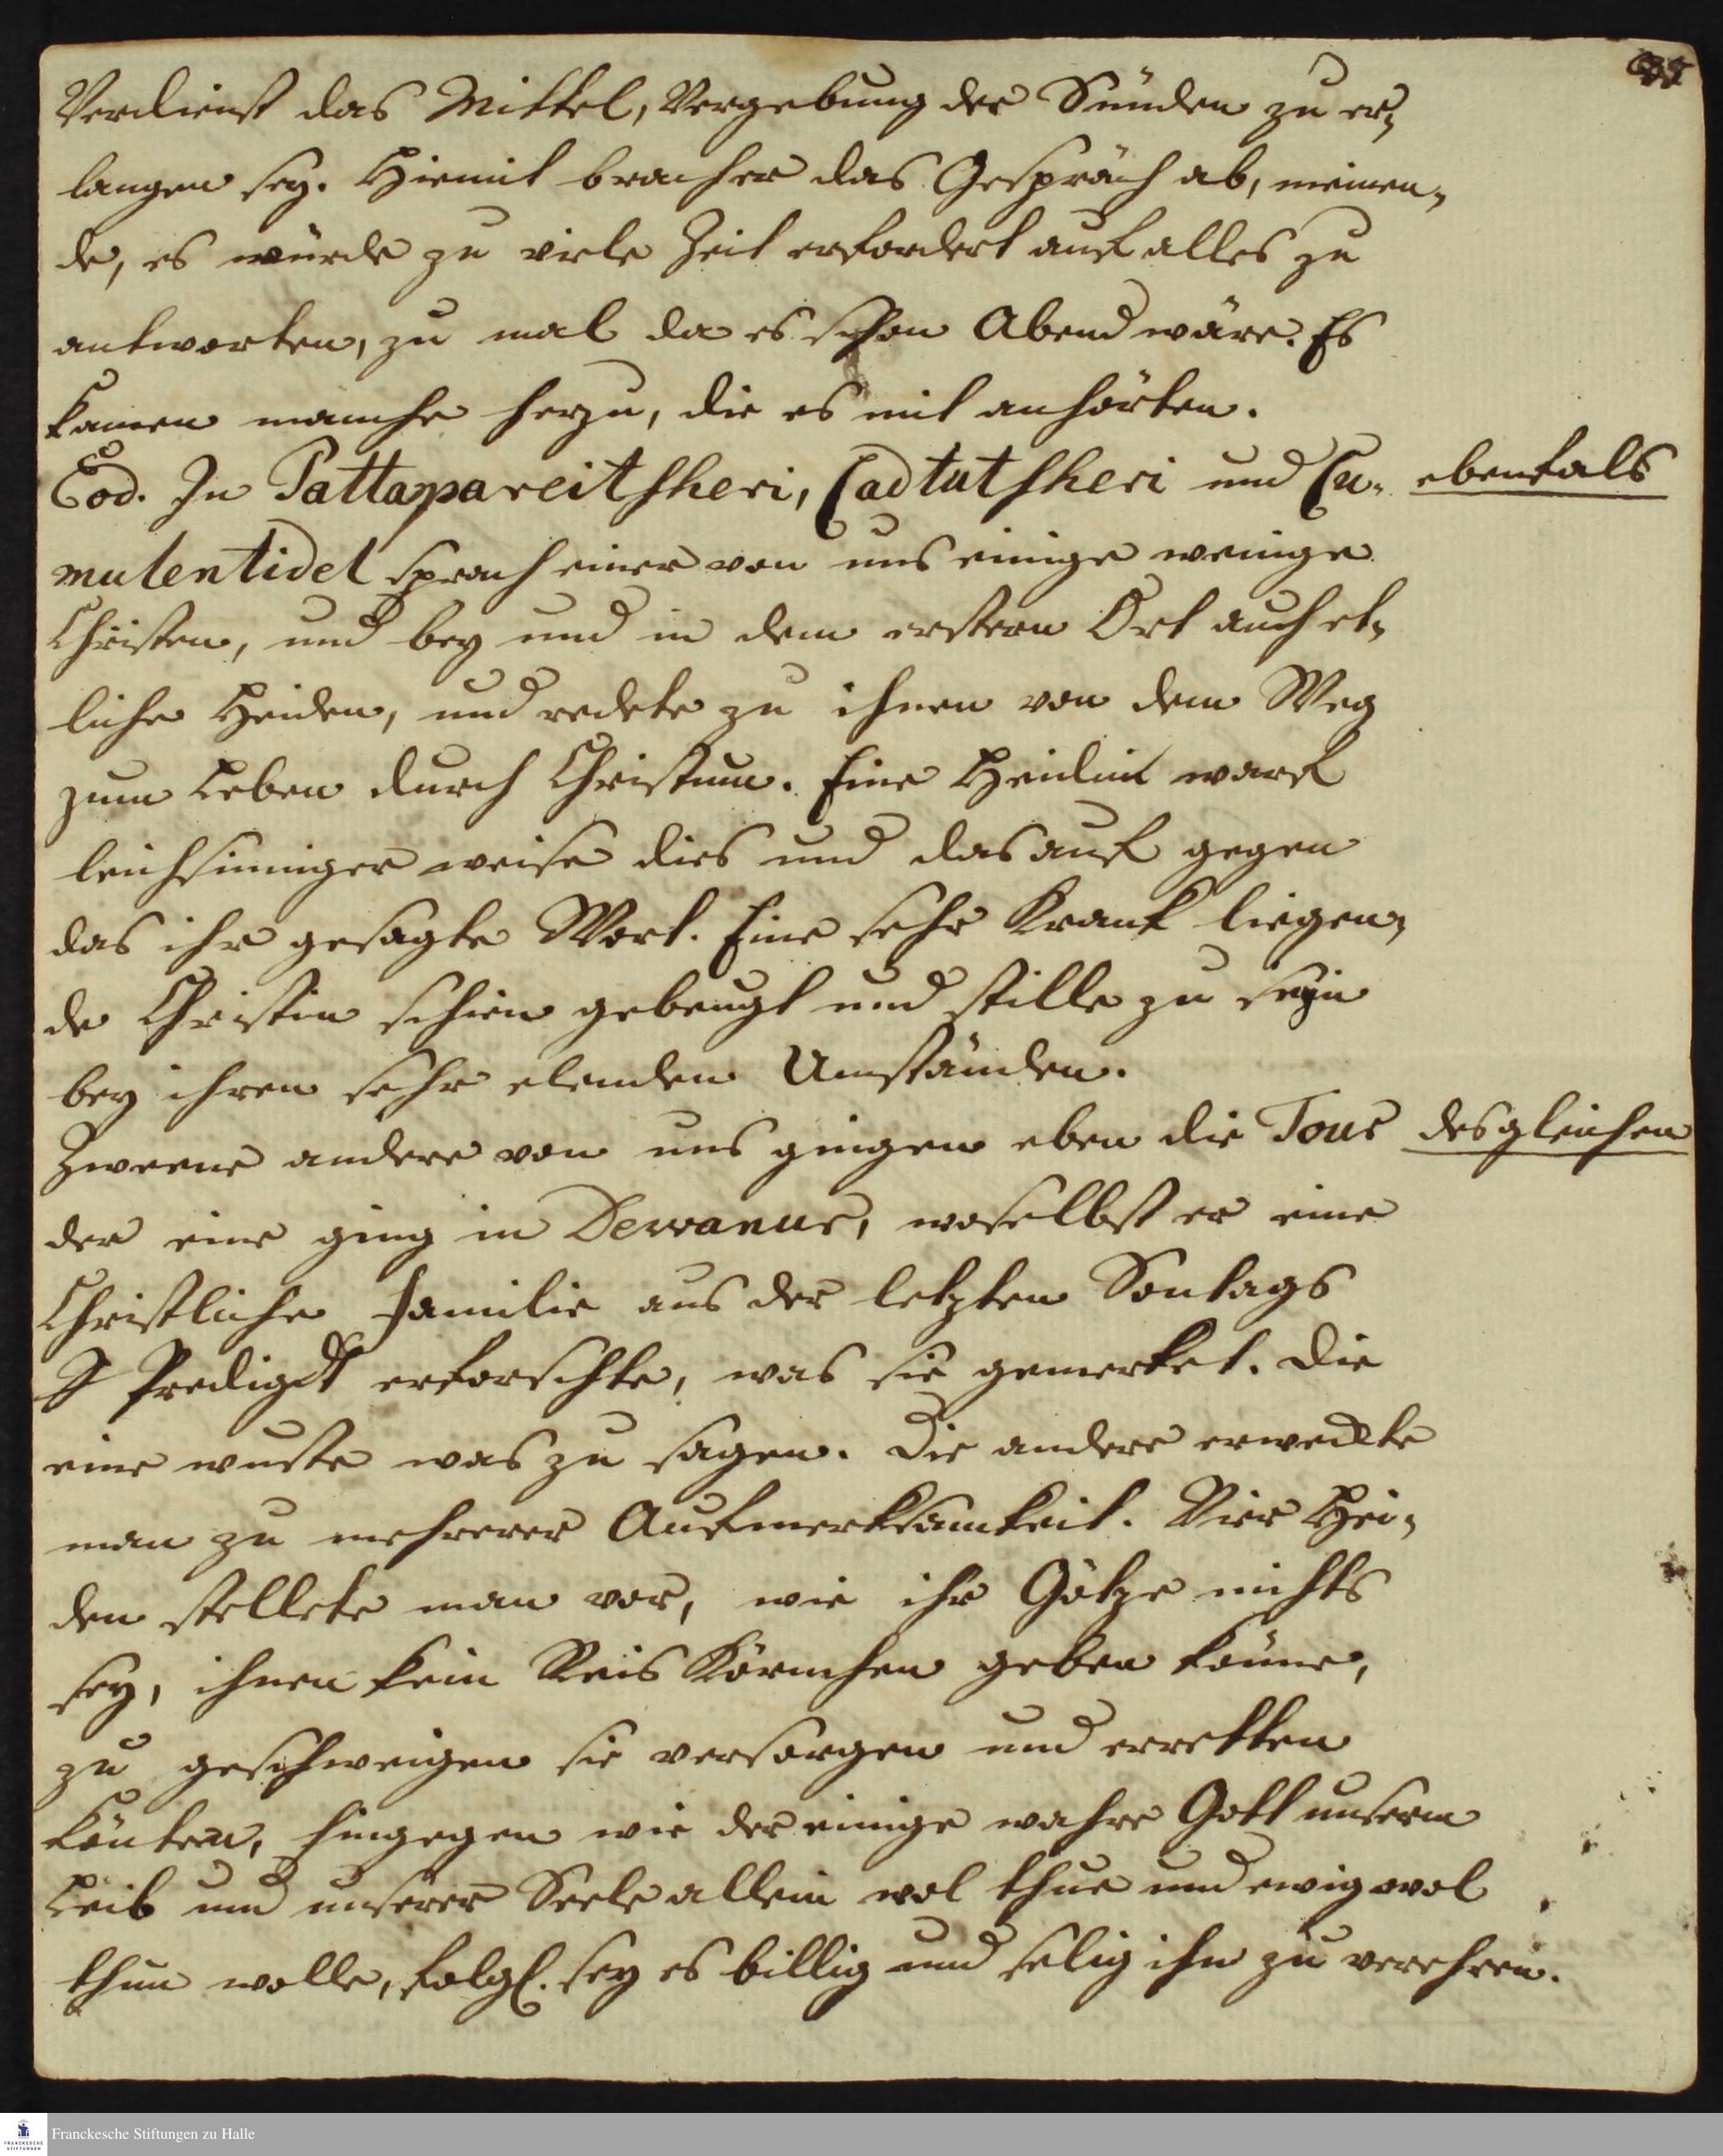 Verdienst das Mittel, Vergebung der Sünden zu er-
langen sey. Hiemit brach er das Gespräch ab, meinen-
de, es würde zu viele Zeit erfordert auf alles zu
antworten, zu mal da es schon Abend wäre. Es
kamen manche herzu, die es mit anhörten.
Eod. In Pattapareitsheri, Cadtutsheri und Cu- ebenfals
mulentidel sprach einer von uns einige wenige
Christen, und bey und in dem erstern Ort auch et-
liche Heiden, und redete zu ihnen von dem Weg
zum Leben durch Christum. Eine Heidin warf
leichsinniger weise dies und das auf gegen
das ihr gesagte Wort. Eine sehr Krank liegen-
de Christin schien gebeugt und stille zu seyn
bey ihren sehr elenden Umständen.
Zweene andere von uns gingen eben die Tour desgleichen
der eine ging in Dewanur, woselbst er eine
Christliche Familie aus der letzten Sontags
Predigt erforschte, was sie gemerket. Die
eine wuste was zu sagen. Die andere erweckte
man zu mehrerer Aufmerksamkeit. Vier Hei-
den stellete man vor, wie ihr Götze nichts
sey, ihnen kein Reis Körnchen geben könne,
zu geschweigen sie versorgen und erretten
könten, hingegen wie der einige wahre Gott unserm
Leib und unserer Seele allein wol thue und ewig wol
thun wolle, folgl. sey es billig und selig ihn zu verehren.
Franckesche Stiftungen zu Halle
FRANCKESCHE
STIFTUNGEN